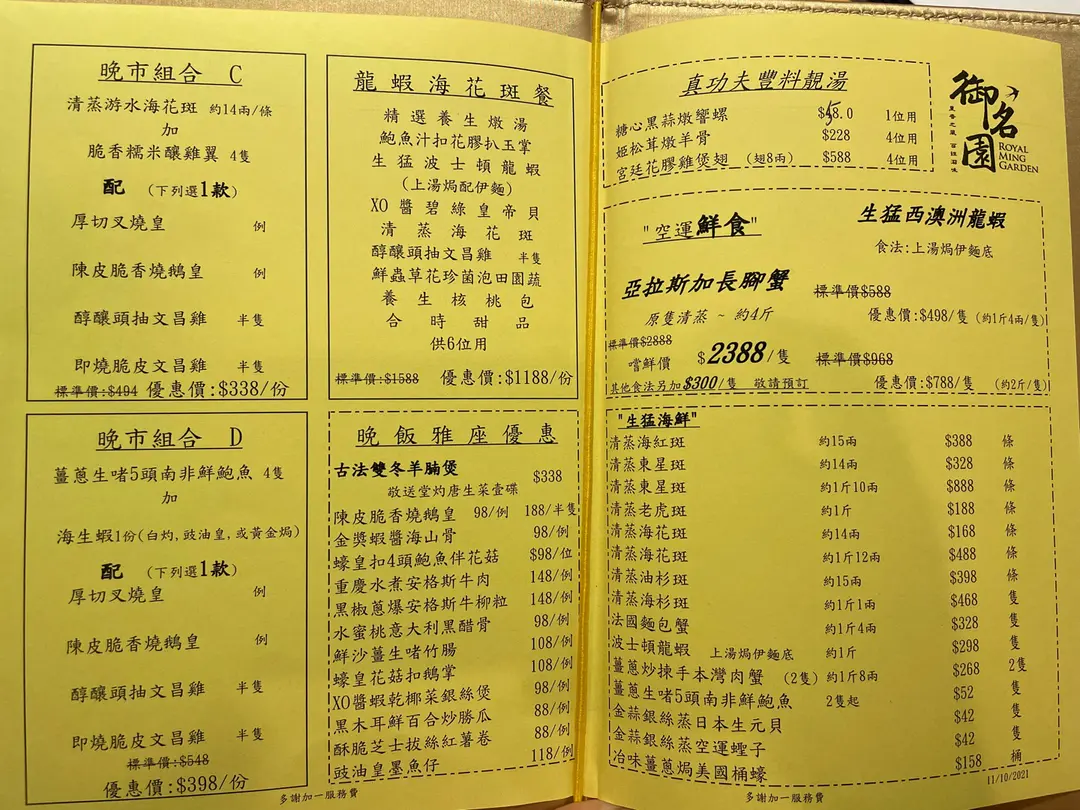 晚市組合 C
清蒸游水海花斑 約14兩/條
加
脆香糯米釀雞翼 4隻
配 (下列選1款)
厚切叉燒皇 例
陳皮脆香燒鵝皇 例
醇釀頭抽文昌雞 半隻
即燒脆皮文昌雞 半隻
標準價:$494 優惠價:$338/份
晚市組合 D
薑蔥生啫5頭南非鮮鮑魚 4隻
加
海生蝦1份(白灼,豉油皇,或黃金焗)
配 (下列選1款)
厚切叉燒皇 例
陳皮脆香燒鵝皇 例
醇釀頭抽文昌雞 半隻
即燒脆皮文昌雞 半隻
標準價:$548
優惠價:$398/份
龍蝦海花斑餐
精選養生燉湯
鮑魚汁扣花膠扒玉掌
生猛波士頓龍蝦
(上湯焗配伊麵)
XO醬碧綠皇帝貝
清蒸海花斑
醇釀頭抽文昌雞 半隻
鮮蟲草花珍菌泡田園蔬
養生核桃包
合時甜品
供6位用
標準價:$1588 優惠價:$1188/份
晚飯雅座優惠
古法雙冬羊腩煲 $338
敬送堂灼唐生菜壹碟
陳皮脆香燒鵝皇 98/例 188/半隻
金獎蝦醬海山骨 98/例
蠔皇扣4頭鮑魚伴花菇 $98/位
重慶水煮安格斯牛肉 148/例
黑椒蔥爆安格斯牛柳粒 148/例
水蜜桃意大利黑醋骨 98/例
鮮沙薑生啫竹腸 108/例
蠔皇花菇扣鵝掌 108/例
XO醬蝦乾椰菜銀絲煲 98/例
黑木耳鮮百合炒勝瓜 88/例
酥脆芝士拔絲紅薯卷 88/例
豉油皇墨魚仔 118/例
多謝加一服務費
真功夫豐料靚湯
糖心黑蒜燉響螺 1位用
姬松茸燉羊骨 $228 4位用
宮廷花膠雞煲翅 (翅8兩) $588 4位用
御名園
ROYAL
MING
GARDEN
"空運鮮食"
生猛西澳洲龍蝦
食法:上湯焗伊麵底
亞拉斯加長腳蟹
標準價$588
原隻清蒸 ~ 約4斤
優惠價:$498/隻 (約1斤4兩/隻)
標準價$2888
嚐鮮價 $2388/隻
標準價$968
其他食法另加$300/隻 敬請預訂
優惠價:$788/隻 (約2斤/隻)
"生猛海鮮"
清蒸海紅斑 約15兩 $388 條
清蒸東星斑 約14兩 $328 條
清蒸東星斑 約1斤10兩 $888 條
清蒸老虎斑 約1斤 $188 條
清蒸海花斑 約14兩 $168 條
清蒸海花斑 約1斤12兩 $488 條
清蒸油杉斑 約15兩 $398 條
清蒸海杉斑 約1斤1兩 $468 隻
法國麵包蟹 約1斤4兩 $328 隻
波士頓龍蝦 上湯焗伊麵底 約1斤 $298 隻
薑蔥炒揀手本灣肉蟹 (2隻) 約1斤8兩 $268 2隻
薑蔥生啫5頭南非鮮鮑魚 2隻起 $52 隻
金蒜銀絲蒸日本生元貝 $42 隻
金蒜銀絲蒸空運蟶子 $42 隻
冶味薑蔥焗美國桶蠔 $158 桶
11/10/2021
多謝加一服務費